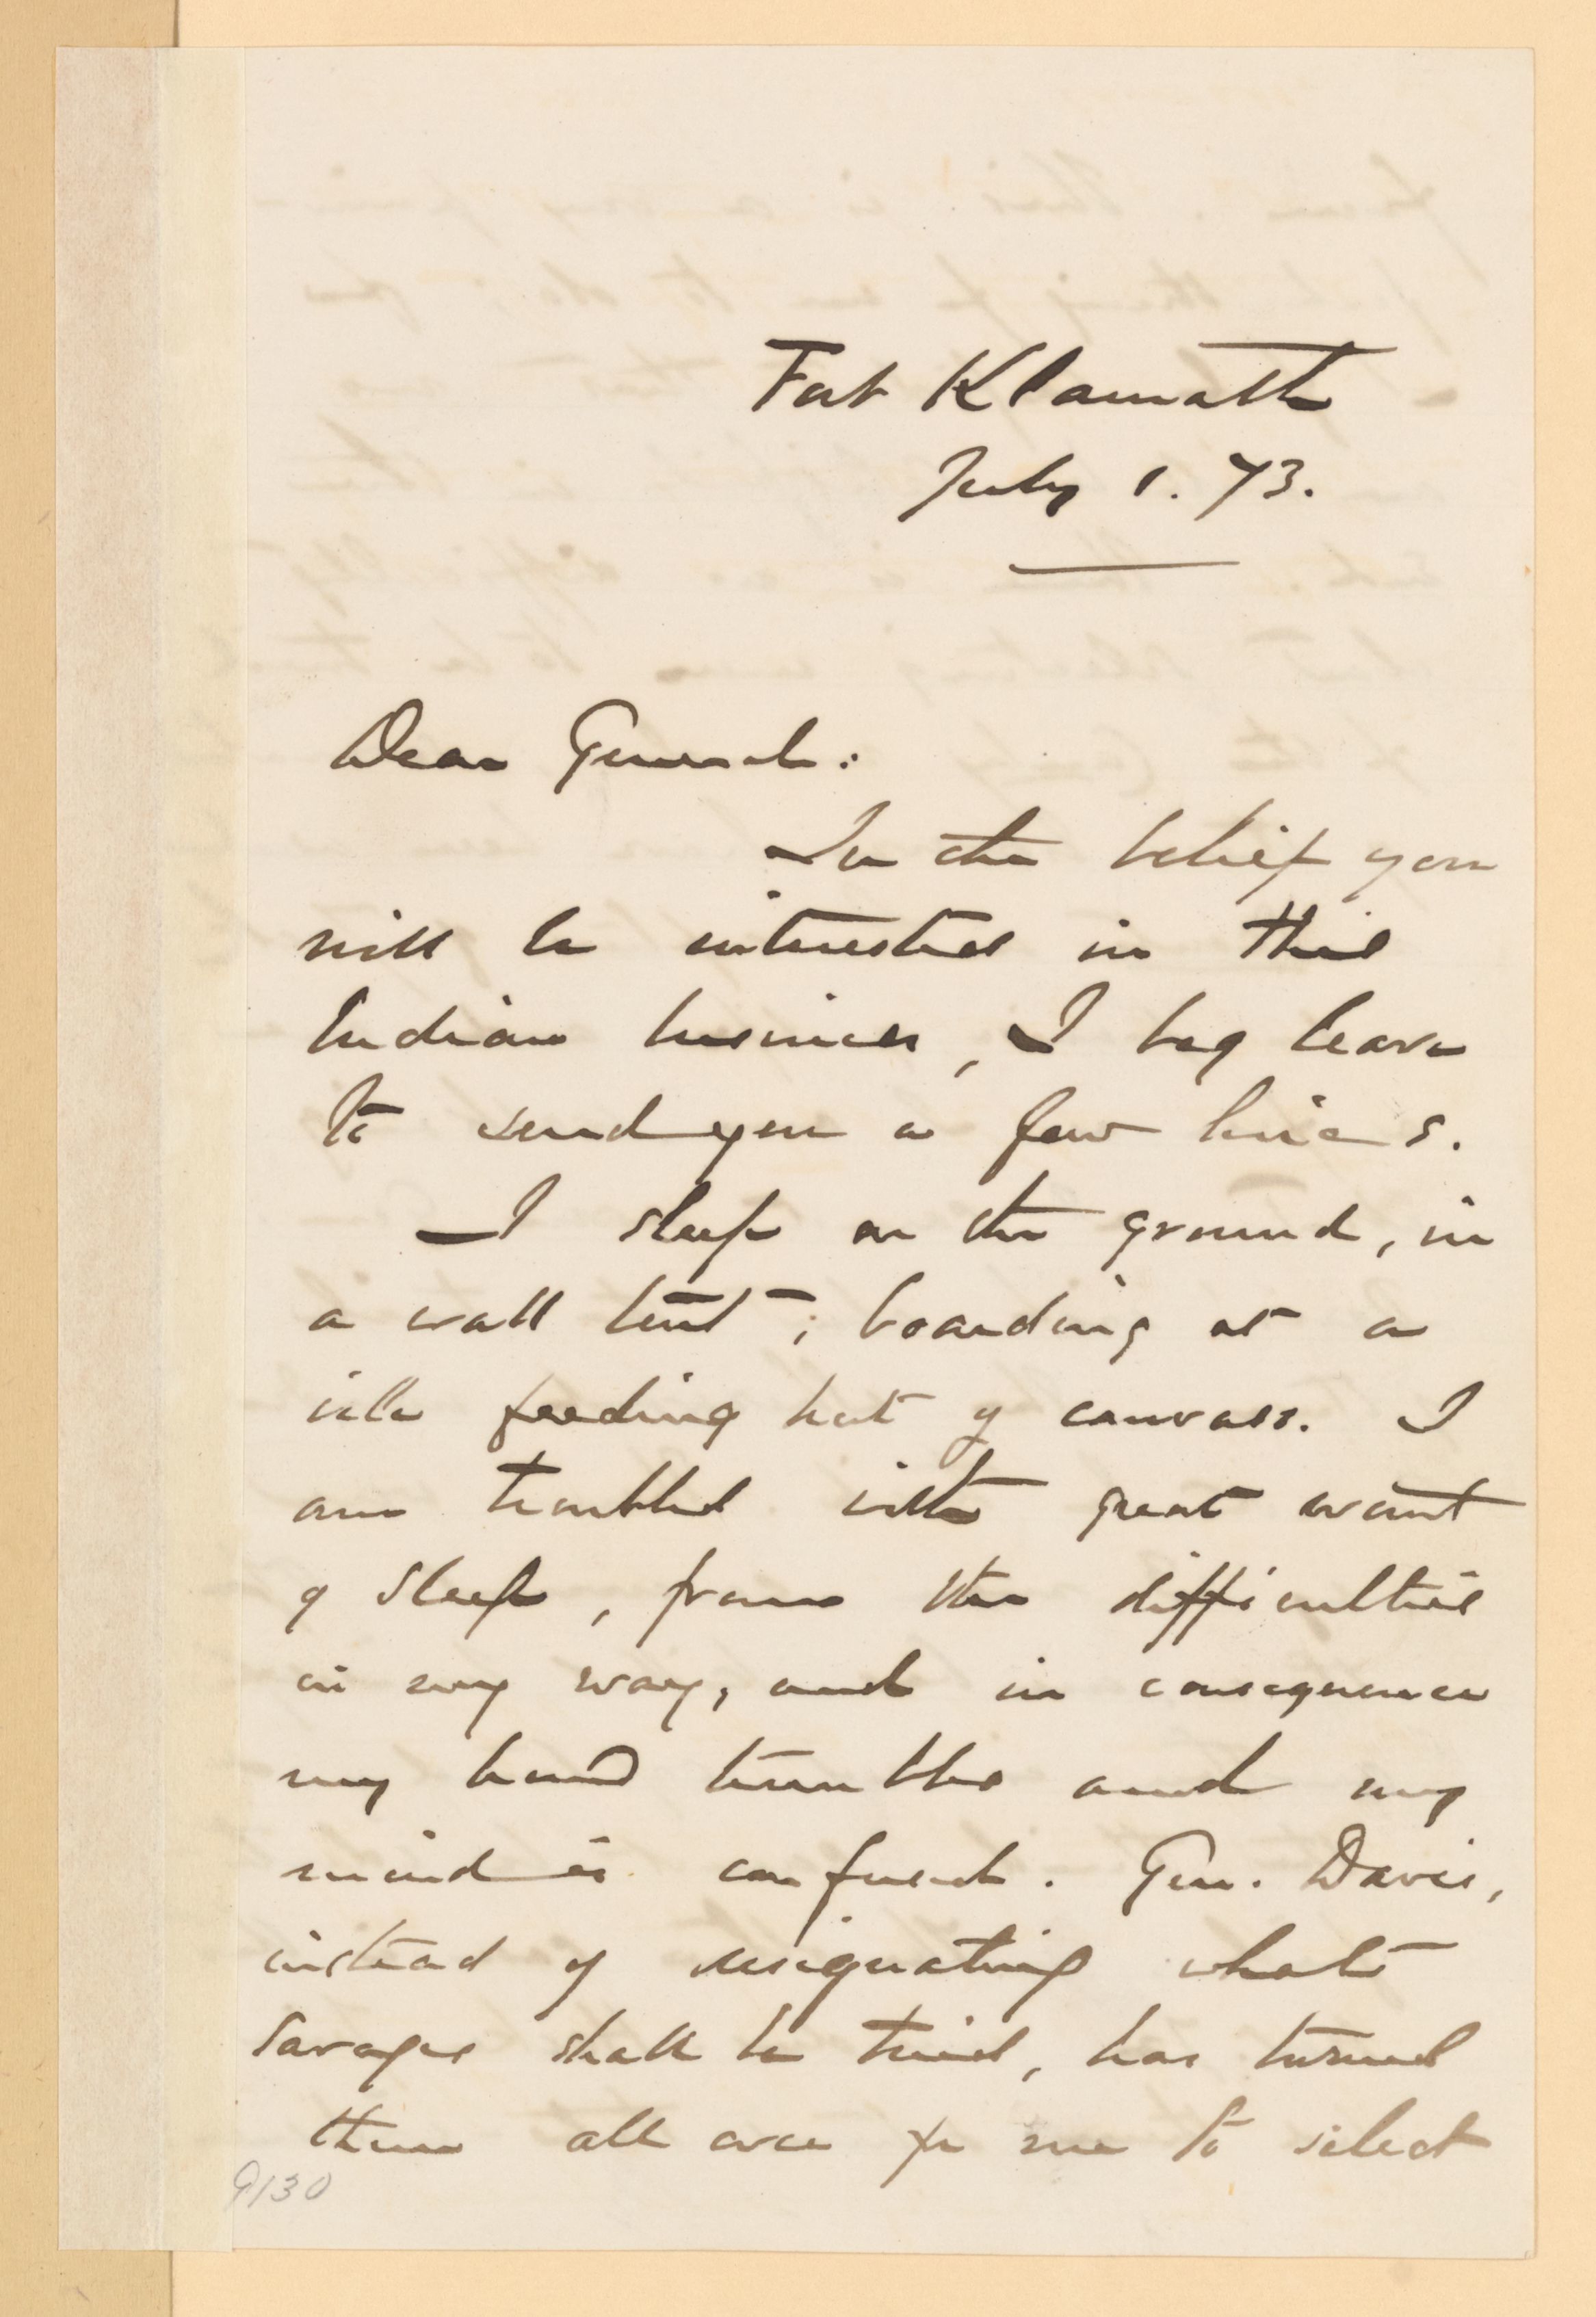 Fort Klamath
July 1. 73.
Dear General:
In the belief you
will be interested in this
Indian business, I beg leave
to send you a few lines.
I sleep on the ground, in
a wall tent; boarding at a
vile feeding hut of canvass. I
am troubled with great want
of sleep, from the difficulties
in my way, and in consequence
my hand trembles and my
mind is confused. Gen. Davis,
instead of designating what
savages shall be tried, has turned
them all over for me to select
9130